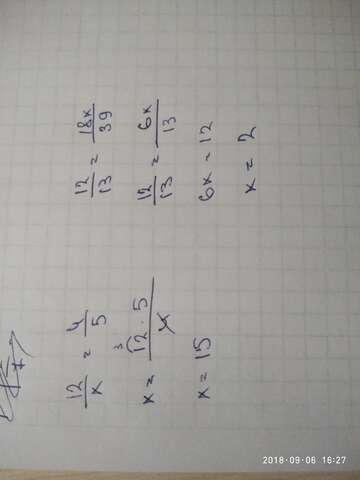 12/x = 4/5
3
x = 12 · 5/4
x = 15
12/13 = 18x/39
12/13 = 6x/13
6x = 12
x = 2
2018-09-06 16:27